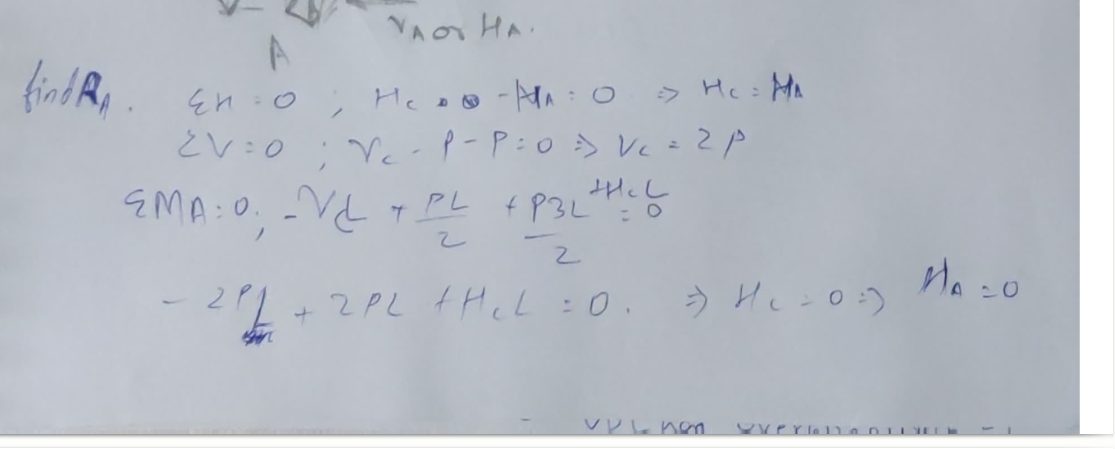 VA or HA.
A
find RA. ΣH = 0 ; Hc - HA = 0 ⇒ Hc = HA
ΣV = 0 ; Vc - P - P = 0 ⇒ Vc = 2P
ΣMA = 0 ; -VcL + PL/2 + P3L/2 + HcL = 0
- 2PL + 2PL + HcL = 0. ⇒ Hc = 0 ⇒ HA = 0